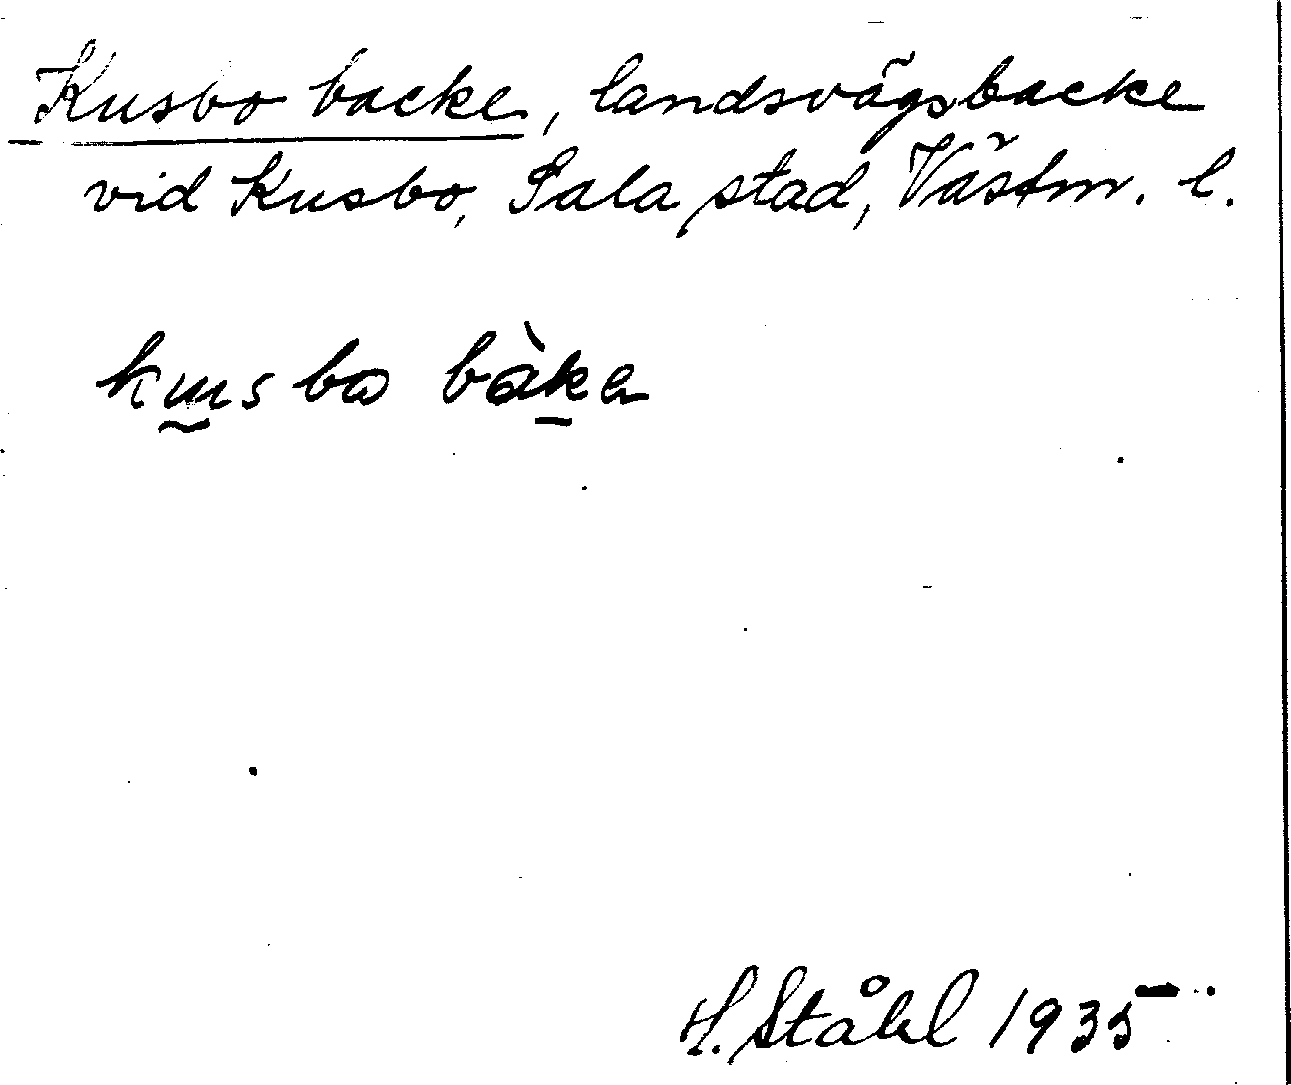 Kusbo backe, landsvägsbacke
vid Kusbo, Sala stad, Västm. l.
kusbo bàka
H. Ståhl 1935.